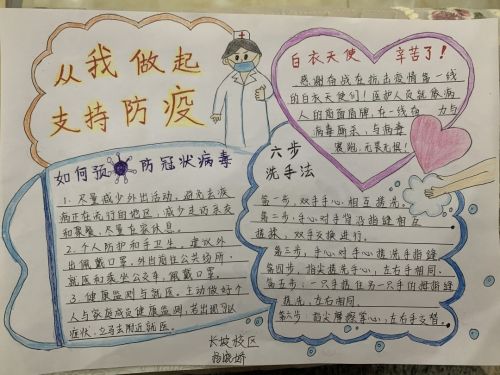 从我做起
支持防疫
白衣天使 辛苦了!
感谢奋战在抗击疫情第一线
的白衣天使们!医护人员就是病
人的盾面盾牌,在一线在 力与
病毒厮杀,与病毒
赛跑,无畏无惧!
如何预防冠状病毒
1.尽量减少外出活动,避免去疾
病正在流行的地区,减少走访亲友
和聚餐,尽量在家休息。
2.个人防护和手卫生,建议外
出佩戴口罩。外出前往公共场所、
就医和乘坐公交车,佩戴口罩。
3.健康监测与就医。主动做好个
人与家庭成员健康监测,若出现可以
症状,立马去附近就医。
六步
洗手法
第一步,双手手心相互搓洗。
第二步:手心对手背沿指缝相互
搓揉,双手交换进行。
第三步,手心对手心搓洗手指缝
第四步,指尖搓洗手心,左右手相同。
第五步:一只手握住另一只手的拇指缝
搓洗,左右相同。
第六步 指尖摩擦掌心,左右手交替。
长坡校区